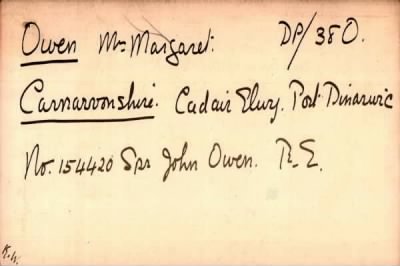 Owen Mrs Margaret. DP/380.
Carnarvonshire. Cadair Elwy. Port Dinorwic
No. 154420 Spr John Owen. R.E.
K.W.